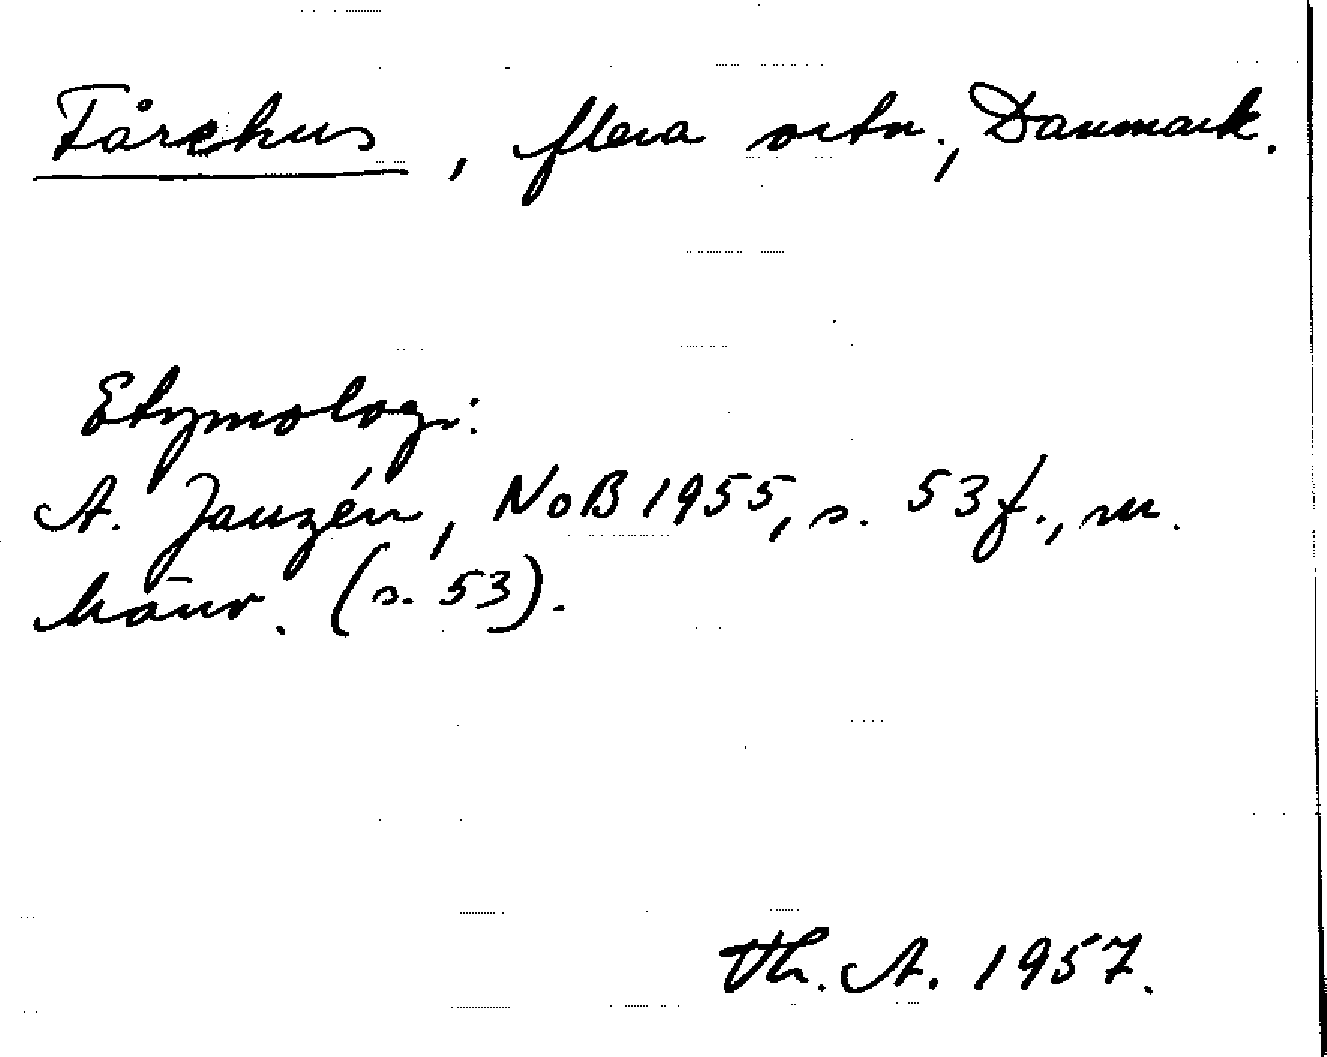 Fårehus, flera ortn., Danmark.
Etymologi:
A. Janzén, NoB 1955, s. 53 f., m.
hänv. (s. 53).
Th. A. 1957.